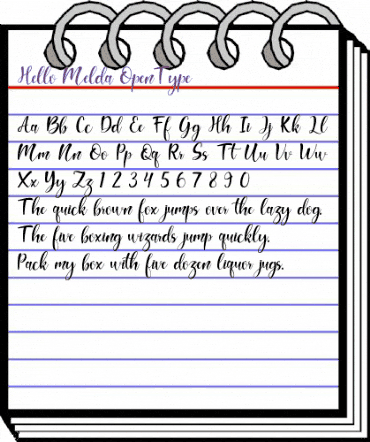 Hello Melda OpenType
Aa Bb Cc Dd Ee Ff Gg Hh Ii Jj Kk Ll
Mm Nn Oo Pp Qq Rr Ss Tt Uu Vv Ww
Xx Yy Zz 1 2 3 4 5 6 7 8 9 0
The quick brown fox jumps over the lazy dog.
The five boxing wizards jump quickly.
Pack my box with five dozen liquor jugs.